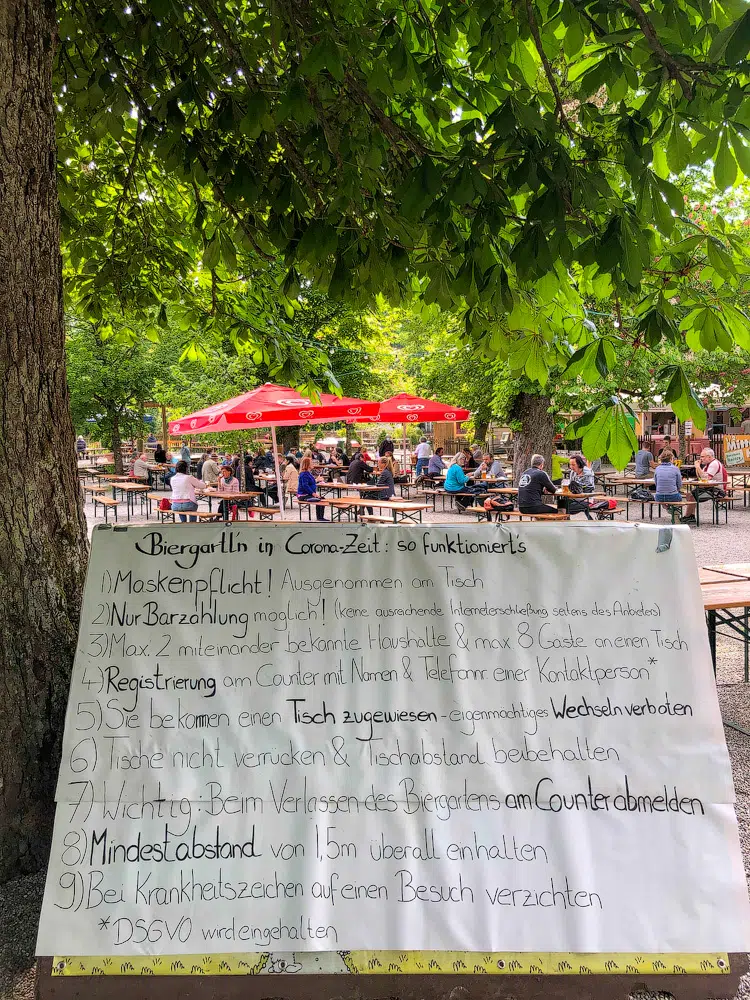 Biergartl'n in Corona-Zeit: so funktioniert's
1) Maskenpflicht! Ausgenommen am Tisch
2) Nur Barzahlung möglich! (keine ausreichende Interneterschließung seitens des Anbieters)
3) Max. 2 miteinander bekannte Haushalte & max 8 Gäste an einen Tisch
4) Registrierung am Counter mit Namen & Telefonnr. einer Kontaktperson*
5) Sie bekommen einen Tisch zugewiesen - eigenmächtiges Wechseln verboten
6) Tische nicht verrücken & Tischabstand beibehalten
7) Wichtig: Beim Verlassen des Biergartens am Counter abmelden
8) Mindestabstand von 1,5m überall einhalten
9) Bei Krankheitszeichen auf einen Besuch verzichten
*DSGVO wird eingehalten